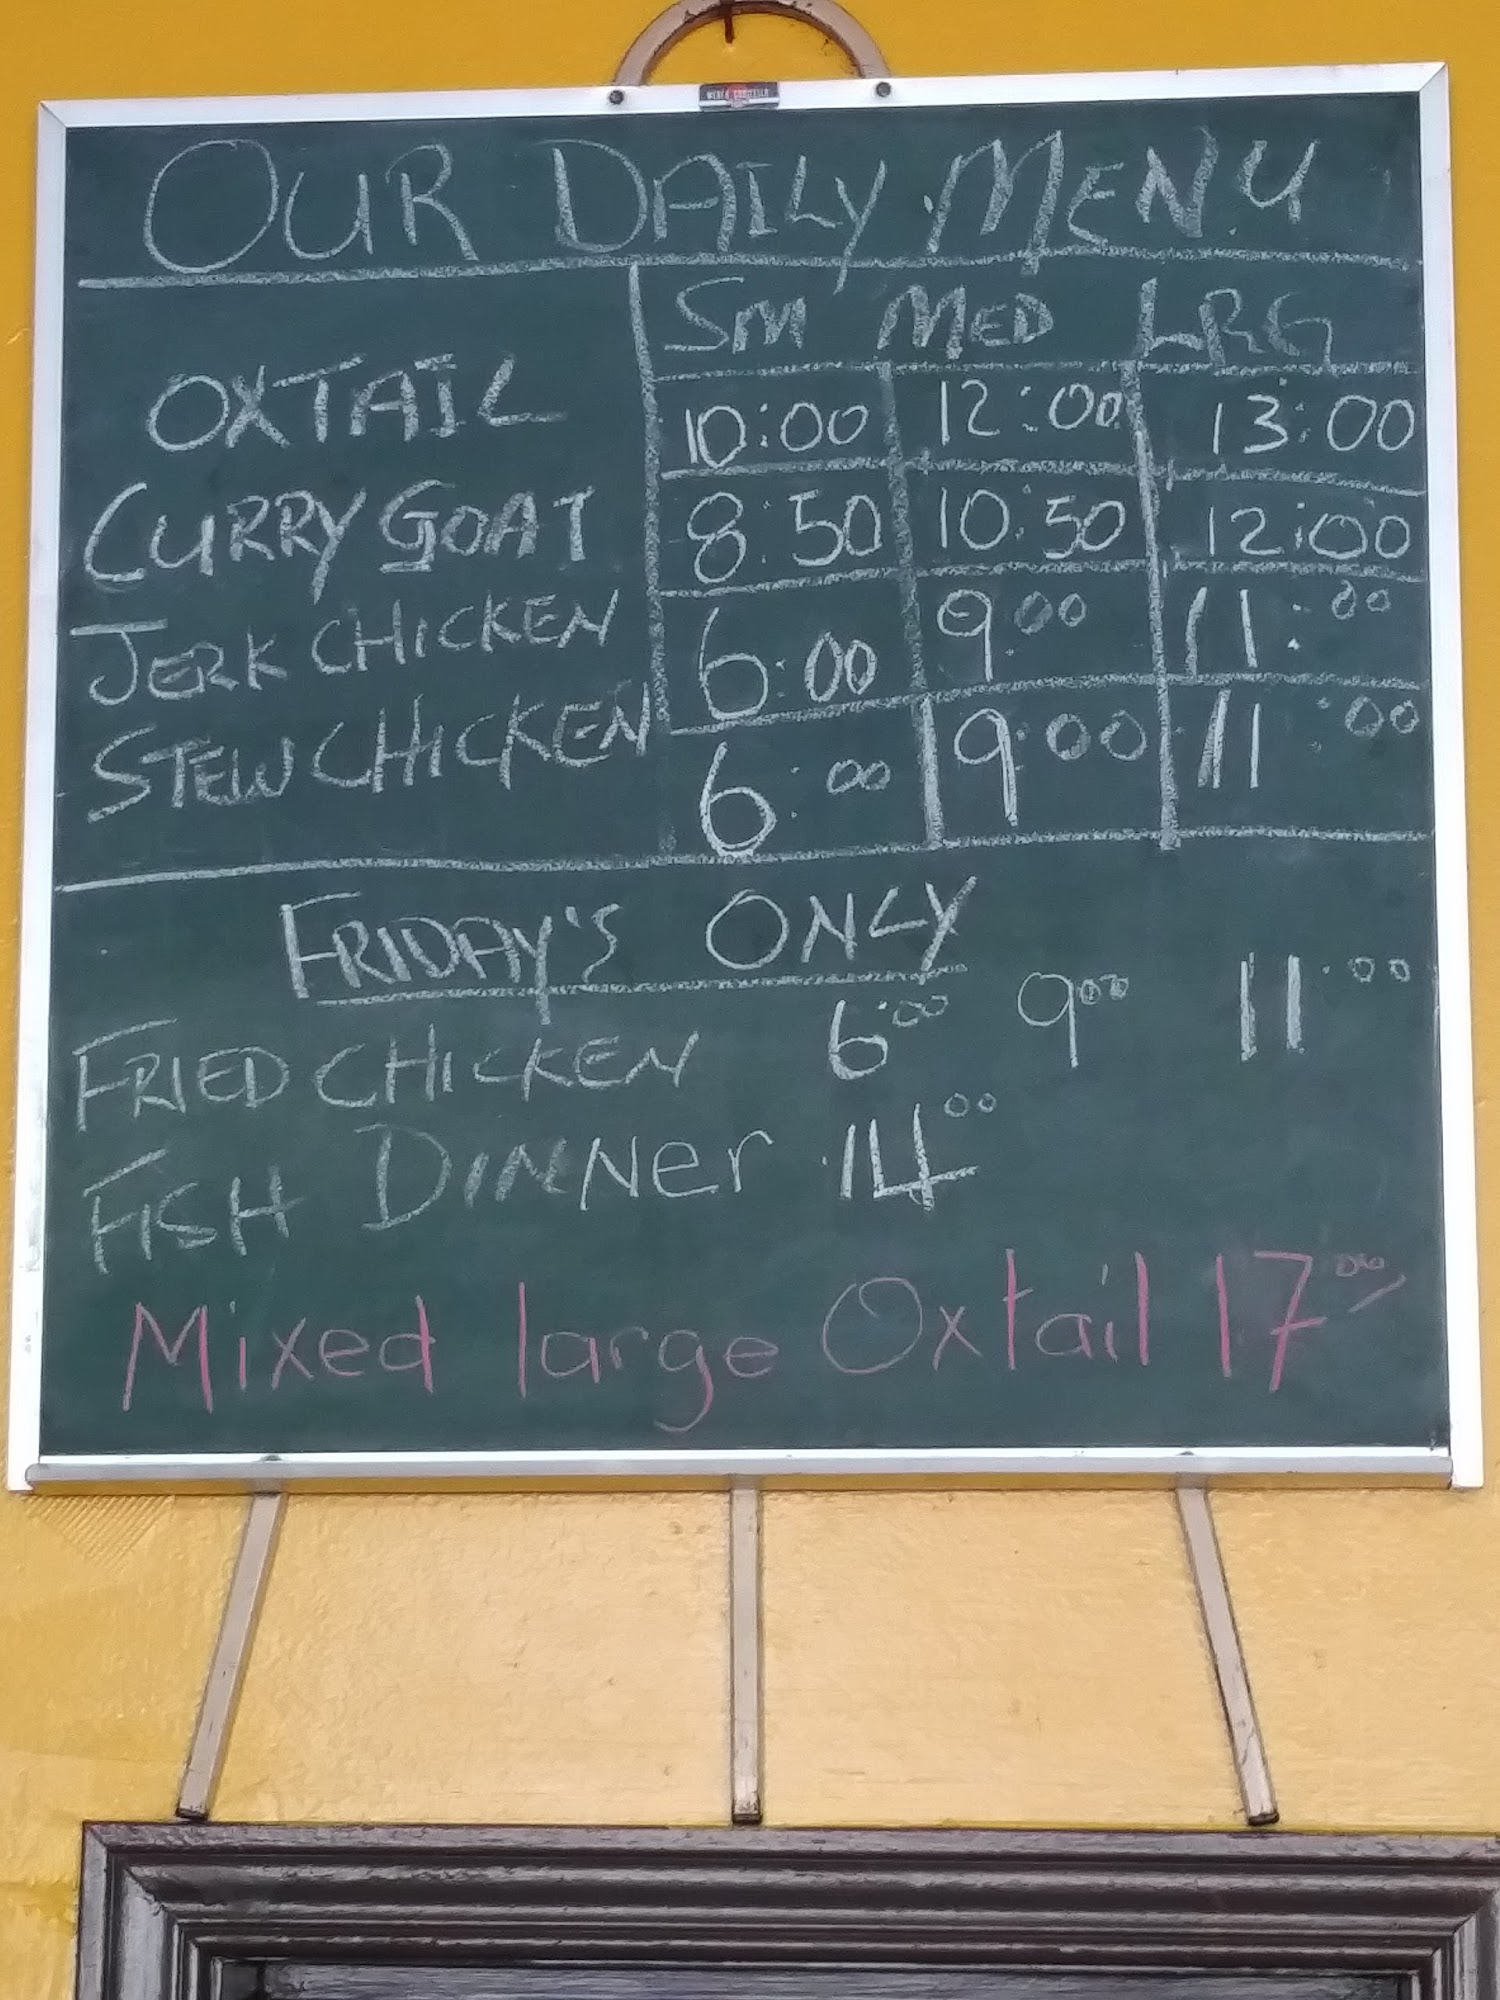 OUR DAILY MENU
SM MED LRG
OXTAIL 10:00 12:00 13:00
CURRY GOAT 8:50 10:50 12:00
JERK CHICKEN 6:00 9:00 11:00
STEW CHICKEN 6:00 9:00 11:00
FRIDAY'S ONLY
FRIED CHICKEN 6:00 9:00 11:00
FISH DINNER 14:00
Mixed large Oxtail 17:00